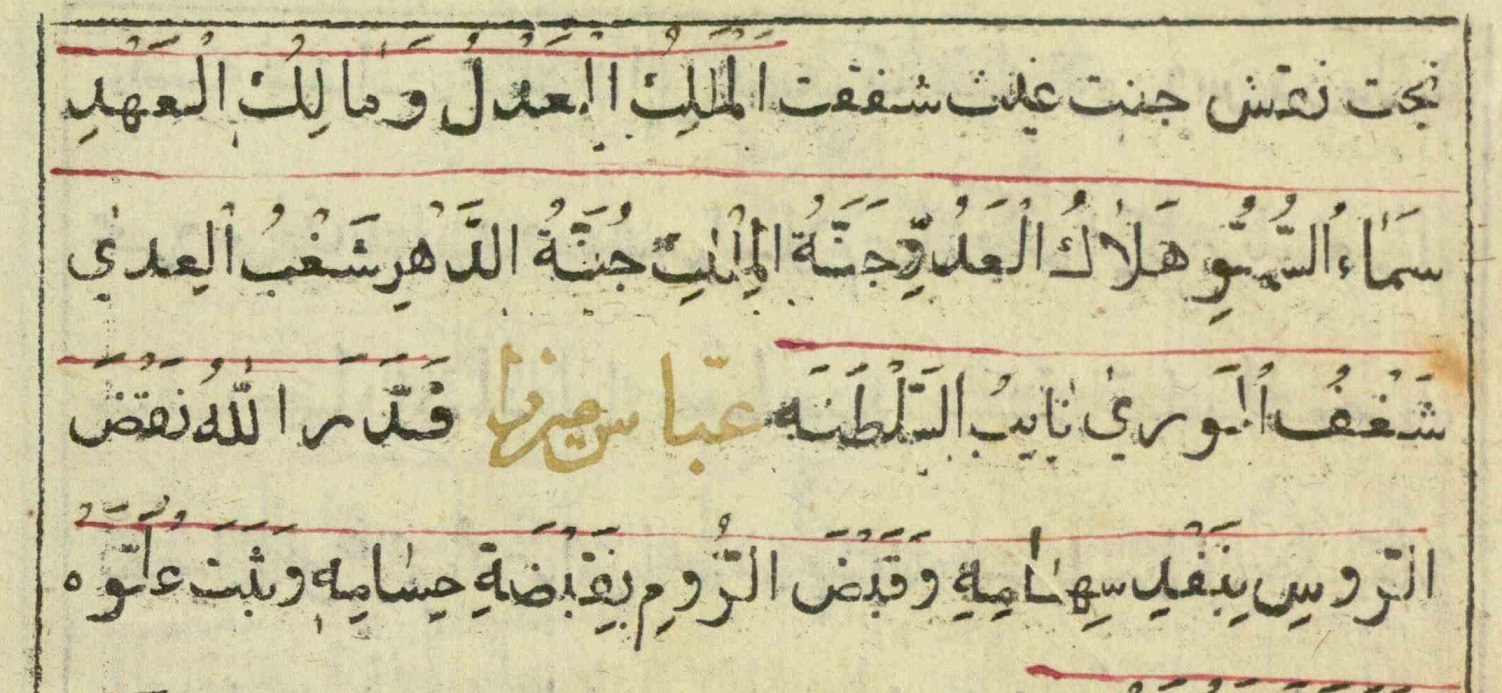 نجت نقش جنت غیث شفقت اَلْمَلِكُ الْعَدْلُ وَمٰالِكُ الْعَهْدِ
سَمٰاءُ السُّمُوِّ هَلٰاكُ الْعَدُوِّ جَنَّةُ الْمُلْكِ جُنَّةُ الدَّهْرِ شَغْبُ الْعِدیٰ
شَغَفُ الْوَریٰ نٰایِبُ السَّلْطَنَه عبّاس میرزا قَدَّرَ اللّٰهُ نَقْضَ
الرُّوسِ بِنَقْدِ سِهٰامِهِ وَقَبْضَ الرُّومِ بِقَبْضَةِ حِسٰامِهِ وَثَبَتَ عُلُوَّهُ